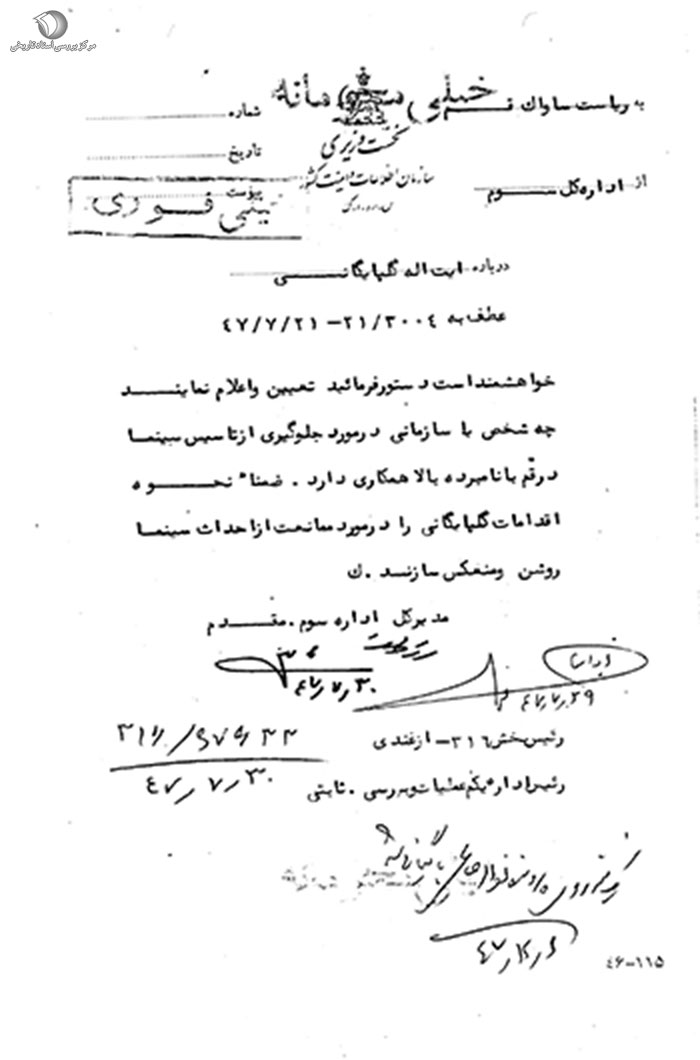 مرکز بررسی اسناد تاریخی
خیلی محرمانه
به ریاست ساواک قم
شماره
نخست وزیری
تاریخ
سازمان اطلاعات و امنیت کشور
از اداره کل سوم
پیوست
خیلی فوری
درباره ایت اله گلپایگانی
عطف به ۲۱/۳۰۰۴ – ۴۷/۷/۲۱
خواهشمند است دستور فرمائید تعیین و اعلام نمایند
چه شخص یا سازمانی در مورد جلوگیری از تاسیس سینما
در قم با نامبرده بالا همکاری دارد. ضمناً نحوه
اقدامات گلپایگانی را در مورد ممانعت از احداث سینما
روشن و منعکس سازند. ك
مدیر کل اداره سوم. مقدم
۴۷٫۷٫۳۰
۴۷٫۷٫۲۹
رئیس بخش ۳۱۶ – ازغندی
۴۷٫۷٫۳۰
رئیس اداره یکم عملیات و بررسی. ثابتی
۴۶–۱۱۵